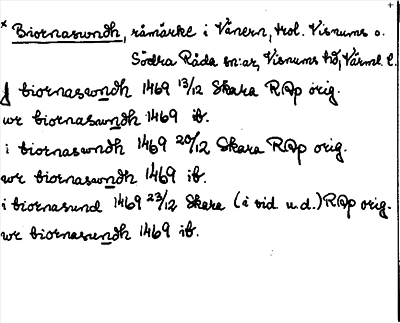 * Biornaswndh, råmärke i Vänern, trol. Visnums o.
Södra Råda sn:ar, Visnums hd, Värml. l.
J biornaswndh 1469 13/12 Skara RAp orig.
wr biornaswndh 1469 ib.
i biornaswndh 1469 20/12 Skara RAp orig.
wr biornaswndh 1469 ib.
i biornasund 1469 23/12 Skara (i vid. u.d.) RAp orig.
wr biornasundh 1469 ib.